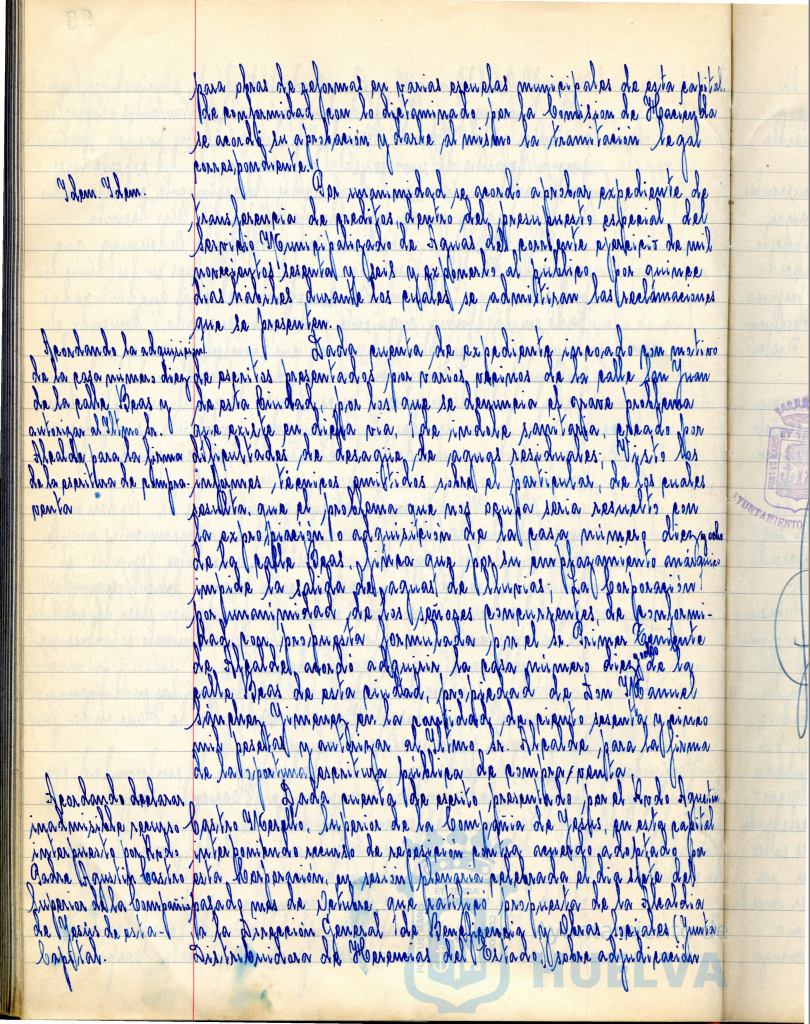 para obras de reformas en varias escuelas municipales de esta capital.
De conformidad con lo dictaminado por la Comision de Hacienda
se acordó su aprobación y darle al mismo la tramitación legal
correspondiente.
Idem. Idem.
Por unanimidad se acordó aprobar expediente de
transferencia de creditos dentro del presupuesto especial del
Servicio Municipalizado de Aguas del corriente ejercicio de mil
novecientos sesenta y seis y exponerlo al público por quince
dias habiles durante los cuales se admitiran las reclamaciones
que se presenten.
Acordando la adquisición
de la casa número diez
de la calle Beas y
autorizar al Iltmo. Sr.
Alcalde para la firma
de la escritura de compra-
venta
Dada cuenta de expediente incoado con motivo
de escritos presentados por varios vecinos de la calle San Juan
de esta Ciudad, por los que se denuncia el grave problema
que existe en dicha via, de indole sanitaria, creado por
dificultades de desagüe de aguas residuales; Visto los
informes técnicos emitidos sobre el particular, de los cuales
resulta que el problema que nos ocupa seria resuelto con
la expropiación o adquisición de la casa número diez y ocho
de la calle Beas, finca que por su emplazamiento anárquico
impide la salida de aguas de lluvias; La Corporación
por unanimidad de los señores concurrentes, de conformi-
dad con propuesta formulada por el Sr. Primer Teniente
de Alcalde, acordó adquirir la casa número diez y ocho de la
calle Beas de esta ciudad, propiedad de Don Manuel
Sánchez Jimenez en la cantidad de ciento sesenta y cinco
mil pesetas y autorizar al Iltmo. Sr. Alcalde, para la firma
de la oportuna escritura pública de compra/venta.
Acordando declarar
inadmisible recurso
interpuesto por Rvdo
Padre Agustin Castro
Superior de la Compañia
de Jesús de esta
Capital.
Dada cuenta de escrito presentado por el Rvdo Agustin
Castro Merello, Superior de la Compañia de Jesús, en esta capital
interponiendo recurso de reposicion contra acuerdo adoptado por
esta Corporación en sesión plenaria celebrada el dia siete del
pasado mes de Octubre que ratificó propuesta de la Alcaldia
a la Dirección General de Beneficencia y Obras Sociales (Junta
Distribuidora de Herencias del Estado) sobre adjudicación
AYUNTAMIENTO
HUELVA